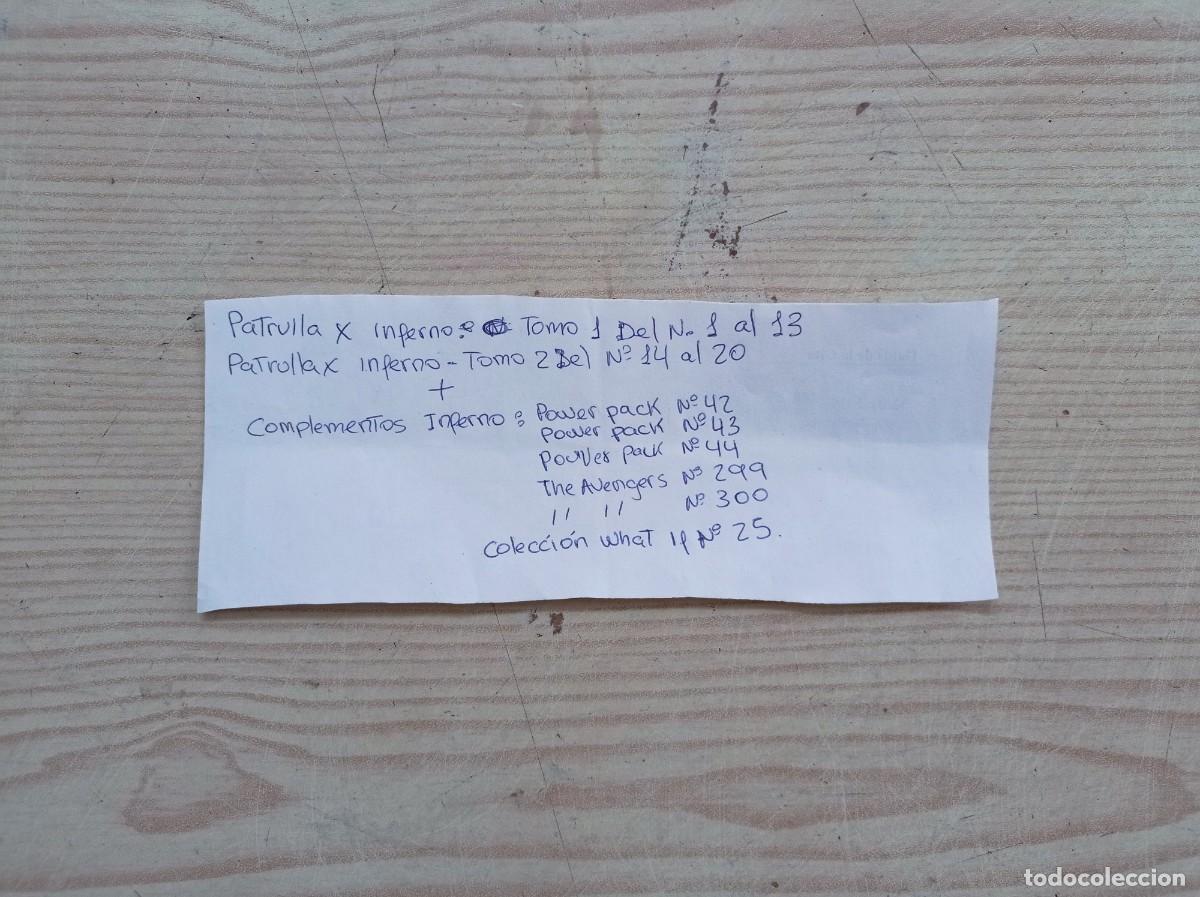 Patrulla X inferno: Tomo 1 Del Nº 1 al 13
Patrulla X inferno - Tomo 2 Del Nº 14 al 20
+
Complementos Inferno: Power pack Nº 42
Power pack Nº 43
Power pack Nº 44
The Avengers Nº 299
" " Nº 300
Colección What if Nº 25.
todocoleccion